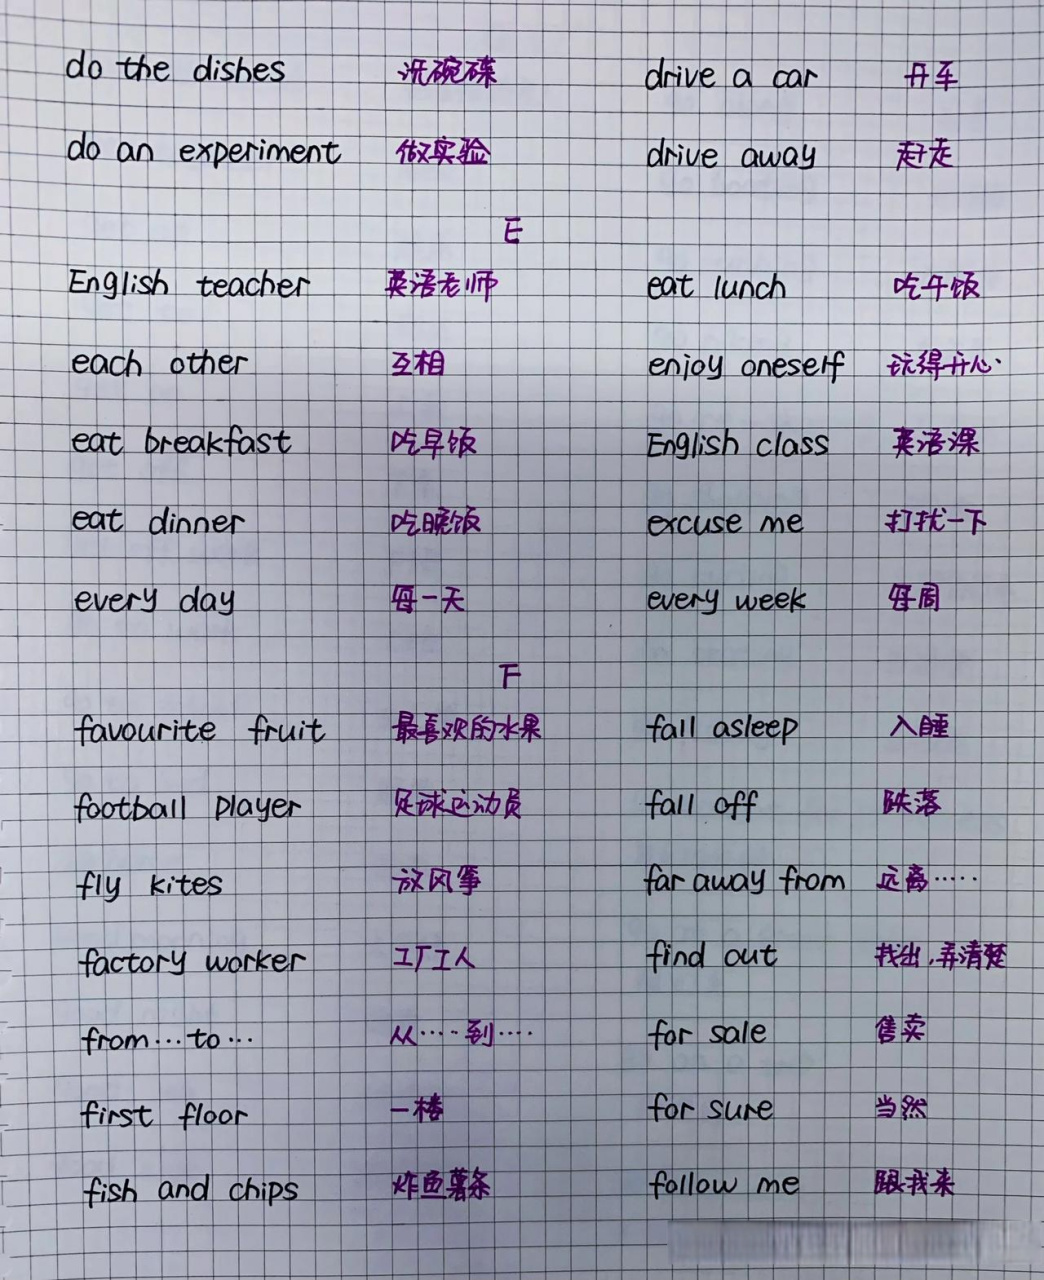 do the dishes 洗碗碟 drive a car 开车
do an experiment 做实验 drive away 赶走
E
English teacher 英语老师 eat lunch 吃午饭
each other 互相 enjoy oneself 玩得开心
eat breakfast 吃早饭 English class 英语课
eat dinner 吃晚饭 excuse me 打扰一下
every day 每一天 every week 每周
F
favourite fruit 最喜欢的水果 fall asleep 入睡
football player 足球运动员 fall off 跌落
fly kites 放风筝 far away from 远离……
factory worker 工厂工人 find out 找出,弄清楚
from…to… 从……到…… for sale 售卖
first floor 一楼 for sure 当然
fish and chips 炸鱼薯条 follow me 跟我来